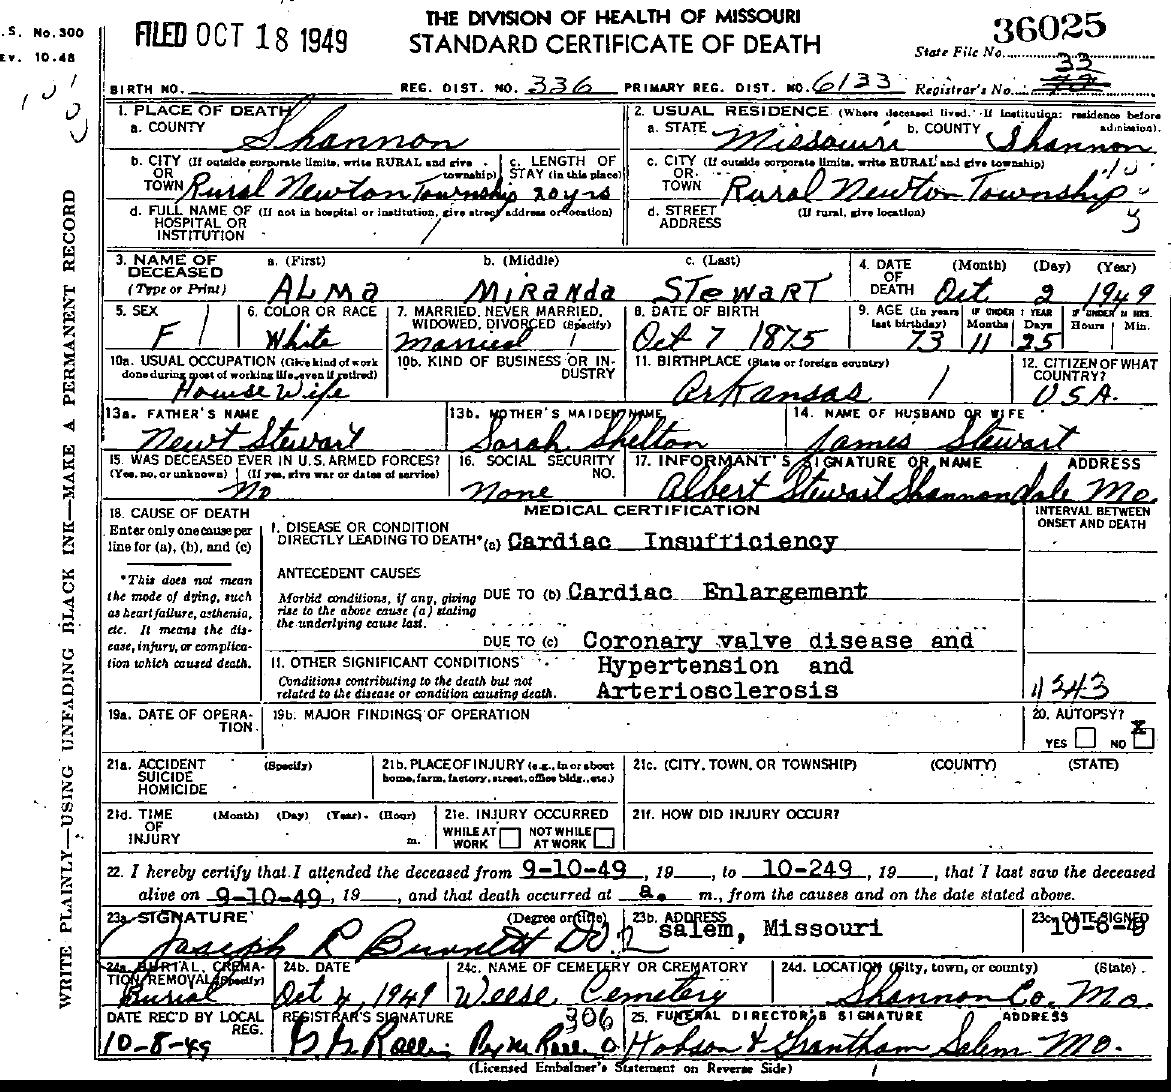 .S. No.300
EV. 10.48
FILED OCT 18 1949
THE DIVISION OF HEALTH OF MISSOURI
STANDARD CERTIFICATE OF DEATH
36025
State File No.
BIRTH NO.
REG. DIST. NO. 336
PRIMARY REG. DIST. NO. 6133
Registrar's No. 33
WRITE PLAINLY—USING UNFADING BLACK INK—MAKE A PERMANENT RECORD
1. PLACE OF DEATH
a. COUNTY Shannon
2. USUAL RESIDENCE (Where deceased lived. If institution: residence before admission).
a. STATE Missouri b. COUNTY Shannon
b. CITY (If outside corporate limits, write RURAL and give township)
OR
TOWN Rural Newton Township
c. LENGTH OF
STAY (in this place)
20 yrs
c. CITY (If outside corporate limits, write RURAL and give township)
OR
TOWN Rural Newton Township
d. FULL NAME OF (If not in hospital or institution, give street address or location)
HOSPITAL OR
INSTITUTION
d. STREET (If rural, give location)
ADDRESS
3. NAME OF
DECEASED
(Type or Print)
a. (First) b. (Middle) c. (Last)
ALMA MIRANDA STEWART
4. DATE (Month) (Day) (Year)
OF
DEATH Oct 2 1949
5. SEX
F
6. COLOR OR RACE
White
7. MARRIED, NEVER MARRIED,
WIDOWED, DIVORCED (Specify)
Married
8. DATE OF BIRTH
Oct 7 1875
9. AGE (In years last birthday) IF UNDER 1 YEAR Months Days IF UNDER 24 HRS. Hours Min.
73 11 25
10a. USUAL OCCUPATION (Give kind of work
done during most of working life, even if retired)
House Wife
10b. KIND OF BUSINESS OR INDUSTRY
11. BIRTHPLACE (State or foreign country)
Arkansas
12. CITIZEN OF WHAT
COUNTRY?
USA.
13a. FATHER'S NAME
Newt Stewart
13b. MOTHER'S MAIDEN NAME
Sarah Shelton
14. NAME OF HUSBAND OR WIFE
James Stewart
15. WAS DECEASED EVER IN U.S. ARMED FORCES?
(Yes, no, or unknown) (If yes, give war or dates of service)
No
16. SOCIAL SECURITY
NO.
None
17. INFORMANT'S SIGNATURE OR NAME ADDRESS
Albert Stewart Shannondale Mo.
18. CAUSE OF DEATH
Enter only one cause per
line for (a), (b), and (c)
*This does not mean
the mode of dying, such
as heart failure, asthenia,
etc. It means the dis-
ease, injury, or complica-
tion which caused death.
MEDICAL CERTIFICATION
INTERVAL BETWEEN
ONSET AND DEATH
I. DISEASE OR CONDITION
DIRECTLY LEADING TO DEATH* (a) Cardiac Insufficiency
ANTECEDENT CAUSES
Morbid conditions, if any, giving
rise to the above cause (a) stating
the underlying cause last.
DUE TO (b) Cardiac Enlargement
DUE TO (c) Coronary valve disease and
Hypertension and
Arteriosclerosis
II. OTHER SIGNIFICANT CONDITIONS
Conditions contributing to the death but not
related to the disease or condition causing death.
19a. DATE OF OPERA-
TION
19b. MAJOR FINDINGS OF OPERATION
20. AUTOPSY?
YES NO X
21a. ACCIDENT (Specify)
SUICIDE
HOMICIDE
21b. PLACE OF INJURY (e.g., in or about
home, farm, factory, street, office bldg., etc.)
21c. (CITY, TOWN, OR TOWNSHIP) (COUNTY) (STATE)
21d. TIME (Month) (Day) (Year) (Hour)
OF
INJURY m.
21e. INJURY OCCURRED
WHILE AT WORK NOT WHILE AT WORK
21f. HOW DID INJURY OCCUR?
22. I hereby certify that I attended the deceased from 9-10-49, 19___, to 10-249, 19___, that I last saw the deceased
alive on 9-10-49, 19___, and that death occurred at a. m., from the causes and on the date stated above.
23a. SIGNATURE (Degree or title)
Joseph R Burnett DO
23b. ADDRESS
salem, Missouri
23c. DATE SIGNED
10-6-49
24a. BURIAL, CREMA-
TION, REMOVAL (Specify)
Burial
24b. DATE
Oct 4, 1949
24c. NAME OF CEMETERY OR CREMATORY
Weese Cemetery
24d. LOCATION (City, town, or county) (State)
Shannon Co. Mo.
DATE REC'D BY LOCAL
REG.
10-8-49
REGISTRAR'S SIGNATURE
306
25. FUNERAL DIRECTOR'S SIGNATURE ADDRESS
Hobson & Grantham Salem Mo.
(Licensed Embalmer's Statement on Reverse Side)